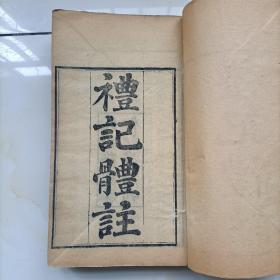 禮記體註